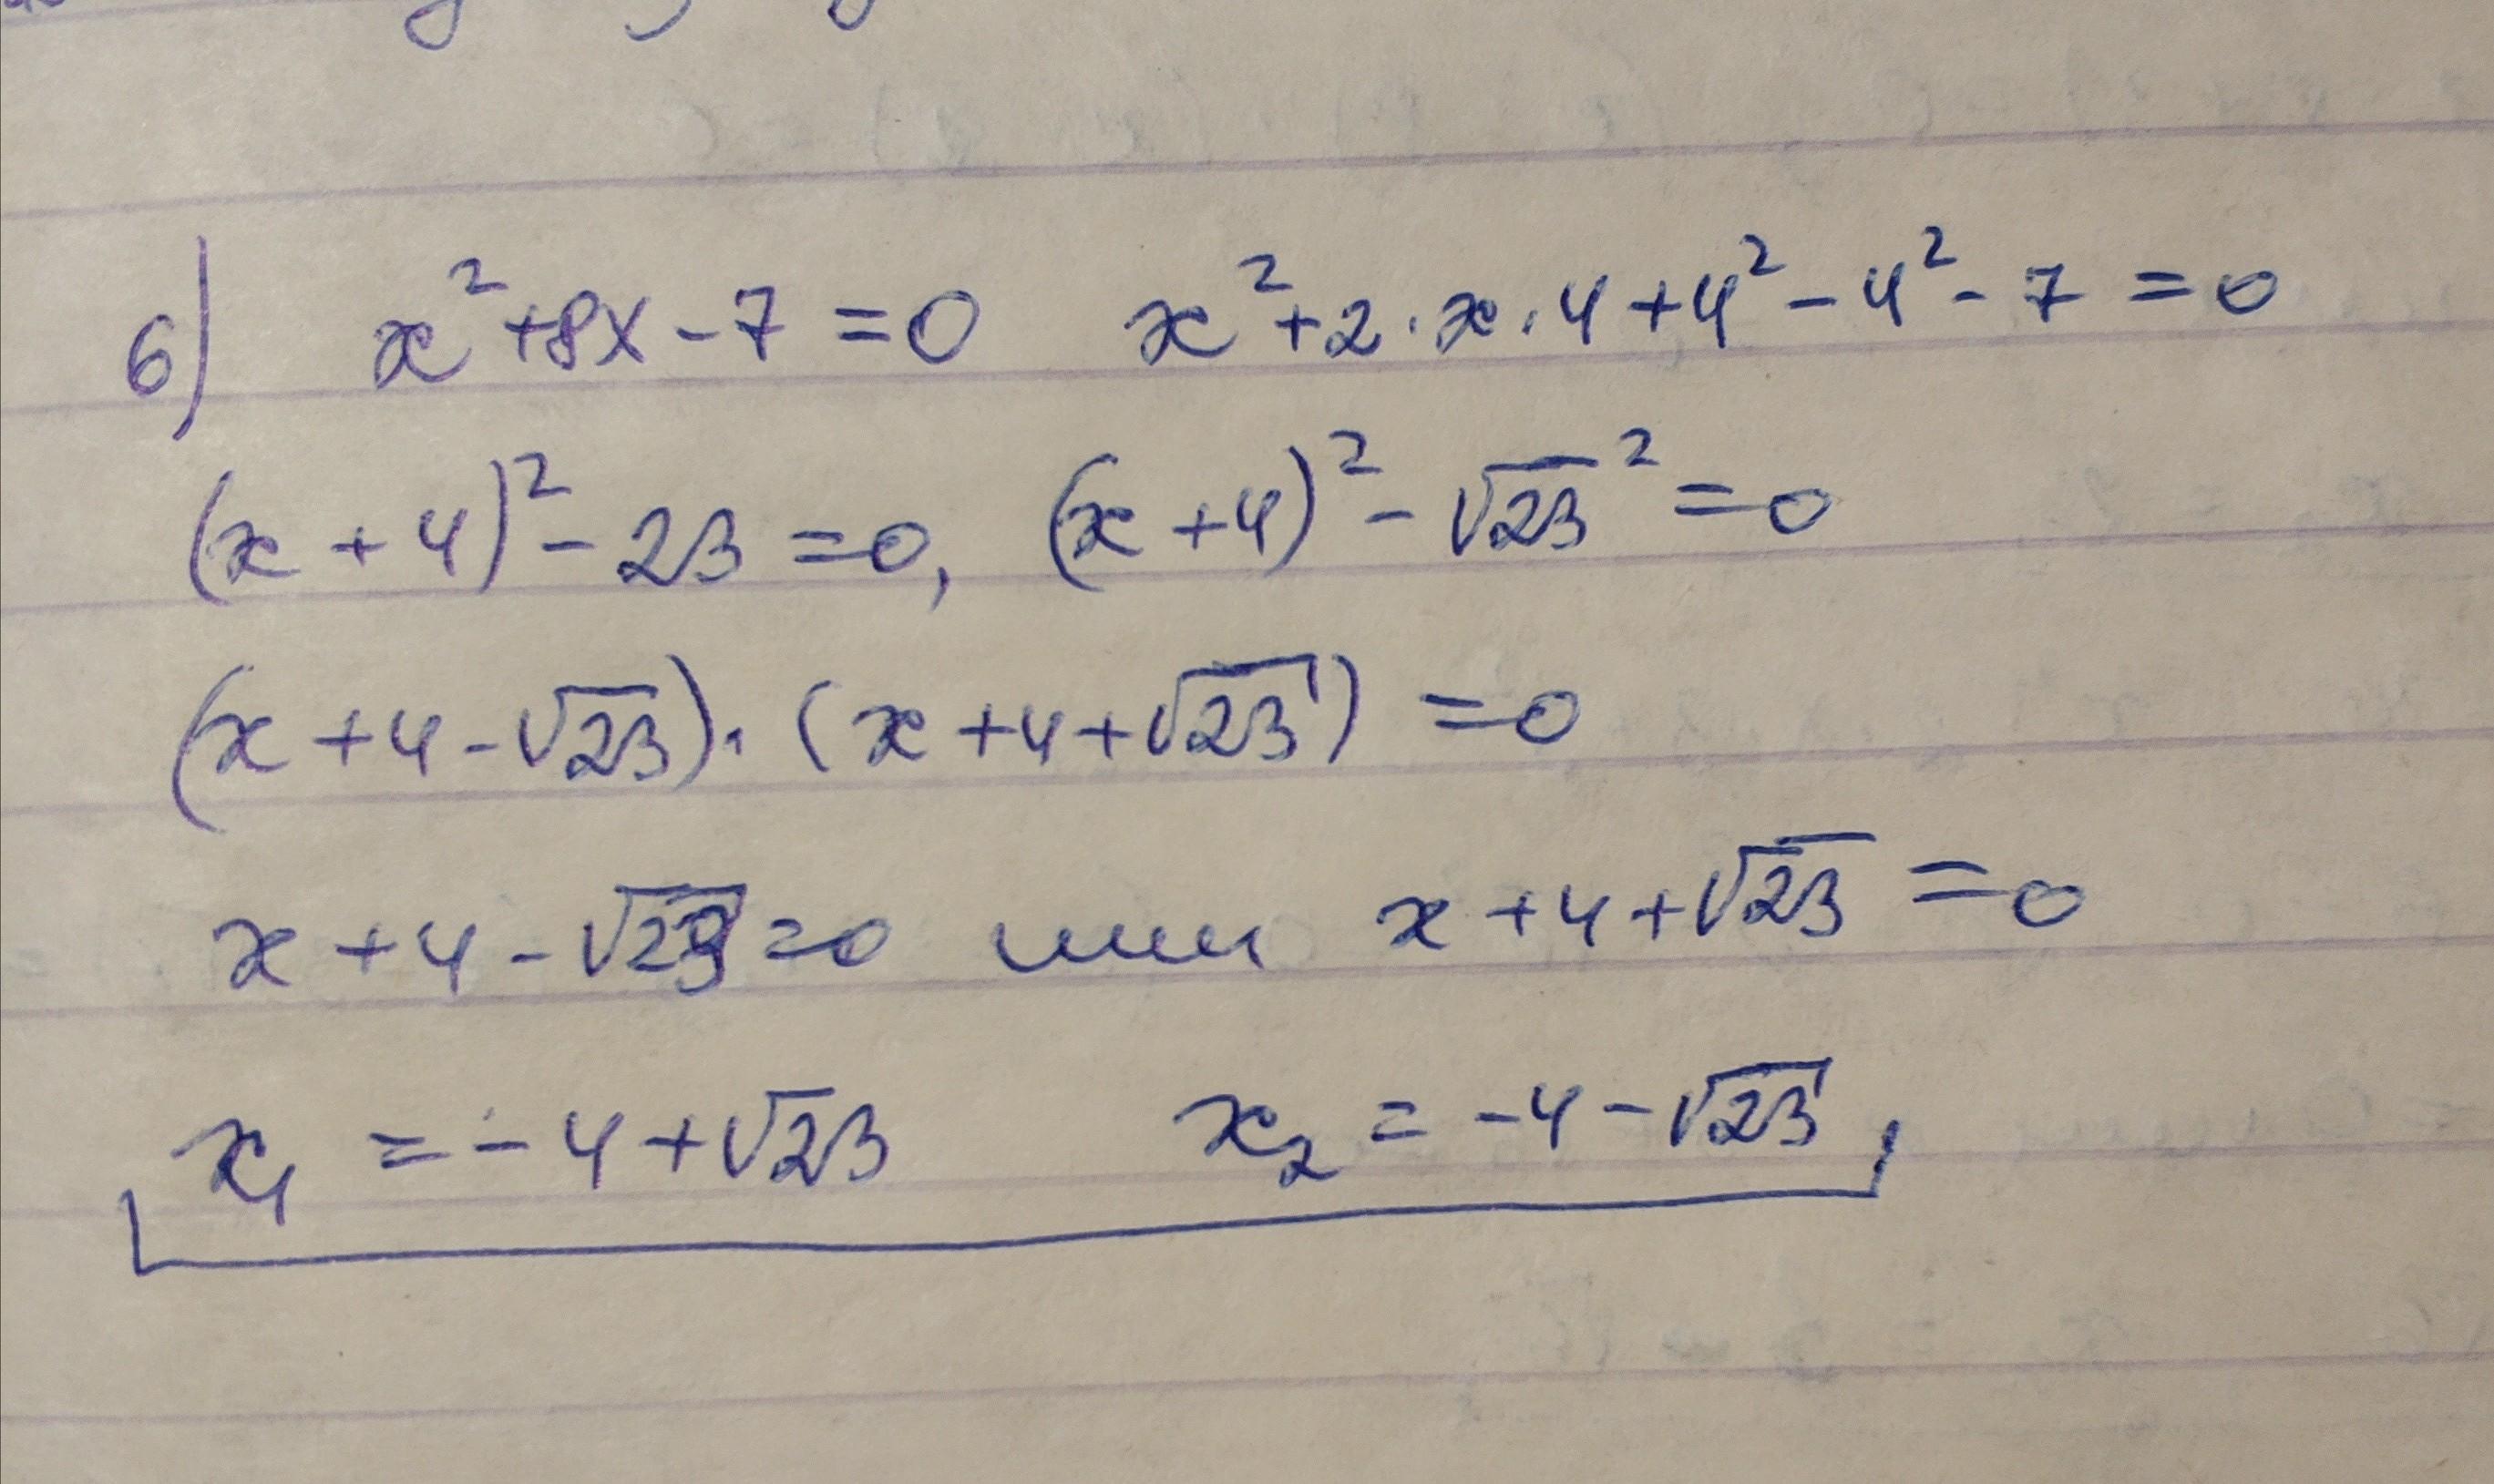 6) x²+8x-7=0 x²+2·x·4+4²-4²-7=0
(x+4)²-23=0, (x+4)²-√23²=0
(x+4-√23)·(x+4+√23)=0
x+4-√23=0 или x+4+√23=0
x₁=-4+√23 x₂=-4-√23